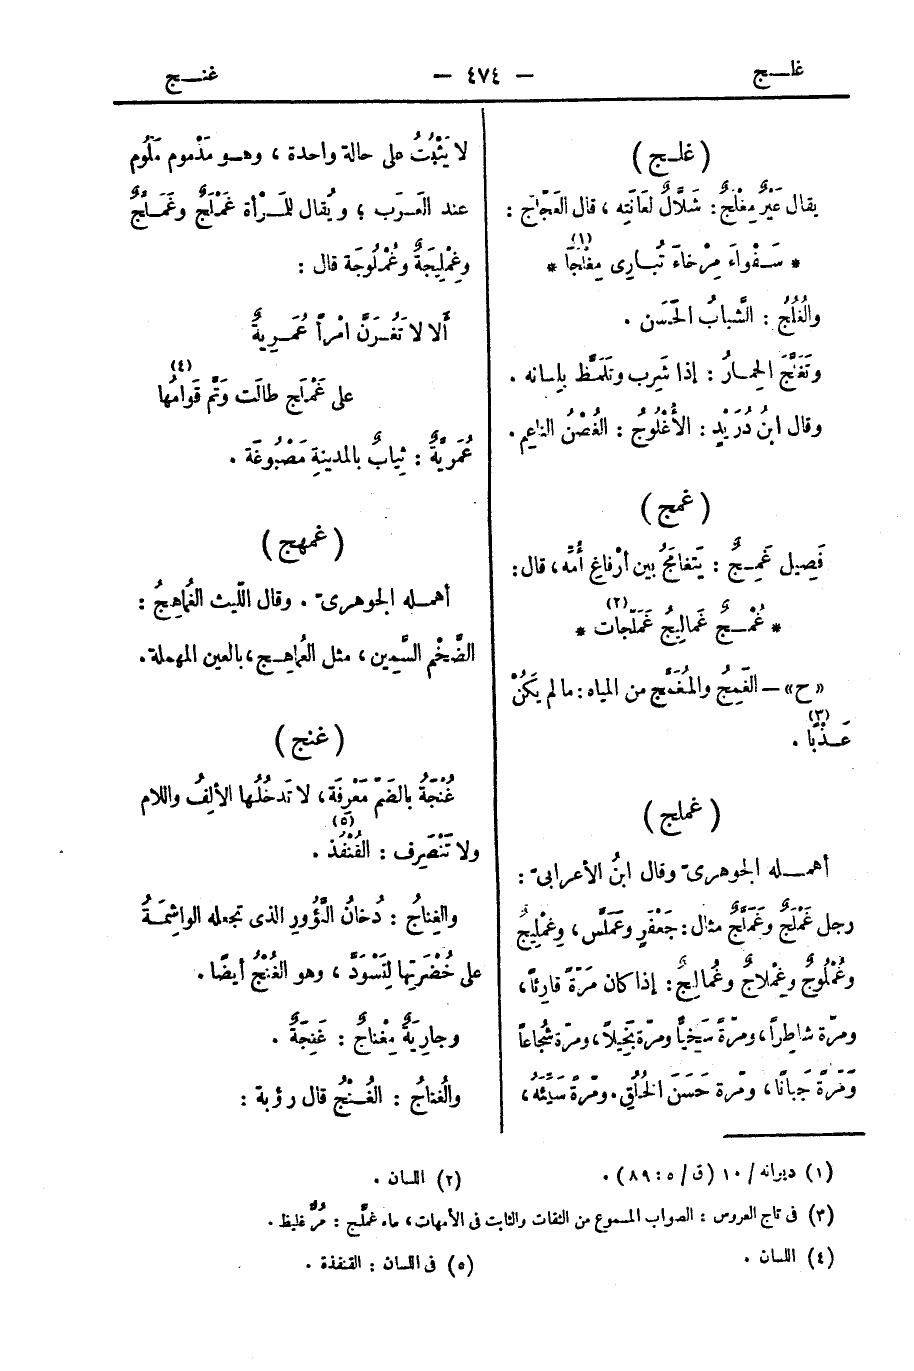 غلـج
— ٤٧٤ —
غنـج
(غلـج)
يقال عَيْرٌ مِغْلَجٌ: شَلَّالٌ لعَانَتِه ، قال العَجّاج :
* سَفْوَاءَ مِرْخَاءَ تُبارِى مِغْلَجَا (١) *
والغُلُجُ : الشَّبابُ الحَسَن .
وتَغَلَّجَ الحِمارُ : إذا شَرِب وتَلَمَّظ بلِسانه .
وقال ابنُ دُرَيْدٍ : الأُغْلُوجُ : الغُصْنُ النّاعِم.
(غمج)
فَصِيل غَمِجٌ : يَتَغامَجُ بين أرْفاغِ أُمِّه، قال:
* غُمْجٌ غَمالِيجُ غَمَلَّجات (٢) *
«ح» — الغَمِجُ والمُغَمَّج من المياه: ما لم يَكُنْ
عَذْبًا (٣) .
(غملج)
أهمـله الجوهرىّ وقال ابنُ الأعرابىّ :
رجل غَمْلَجٌ وغَمَلَّجٌ مثال: جَعْفَرٍ وعَمَلَّس، وغِمْلِيجٌ
وغُمْلُوجٌ وغِمْلاجٌ وغُمالِجٌ: إذا كان مَرّةً قارِئًا،
ومرّة شاطِرًا، ومرّةً سَخِيًّا ومرّة بَخِيلاً، ومرّة شُجاعاً
ومَرّةً جَبانًا، ومرّة حَسَنَ الخُلُقِ. ومرّةً سَيِّئَه،
لا يَثْبُتُ على حالة واحدة ، وهـو مَذْموم مَلُوم
عند العَرَب ؛ ويُقال للمَـرْأة غَمْلَجٌ وغَمَلَّجٌ
وغِمْلِيجَةٌ وغُمْلُوجَة قال :
أَلا لا تَغُرَّنَّ امْرأً عُمَـرِيةٌ
على غَمْلَجٍ طالَت وَتمَّ قَوامُها (٤)
عُمَرِيَّةٌ : ثِيابٌ بالمدينةِ مَصْبُوغَة .
(غمهج)
أهمـله الجوهرىّ . وقال اللّيث الغُماهِجُ :
الضَّخْم السَّمِين، مثل العُماهِـج، بالعين المهملة.
(غنج)
غُنْجَةُ بالضَمّ مَعْرِفَة، لا تَدخُلُها الألِفُ واللام
ولا تَنْصَرِف : القُنْفُذ (٥) .
والغِناجُ : دُخانُ النَّؤُورِ الذى تجعله الواشِمَةُ
على خُضْرَتِها لِتَسْوَدَّ ، وهو الغُنْجُ أيضًا.
وجارِيَةٌ مِغْناجٌ : غَنِجَةٌ .
والغُناجُ : الغُـنْجُ قال رؤبة :
(١) ديوانه / ١٠ (ق / ٥ : ٨٩) .
(٢) اللسان .
(٣) فى تاج العروس : الصواب المسموع من الثقات والثابت فى الأمهات، ماء غملّج : مُرٌّ غليظ .
(٤) اللسان .
(٥) فى اللسان : القنفذة .